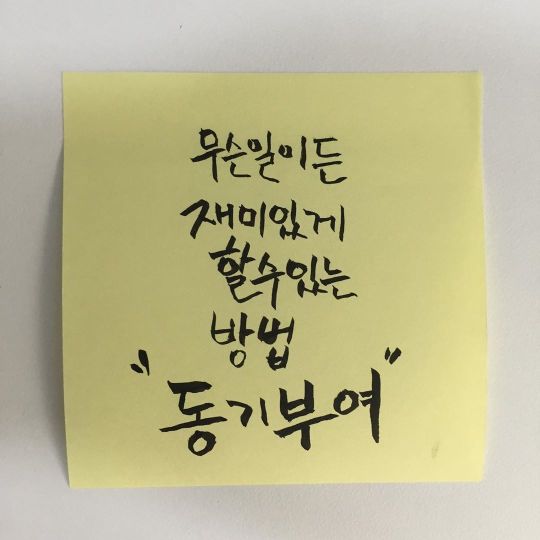 무슨일이든
재미있게
할수있는
방법
"동기부여"